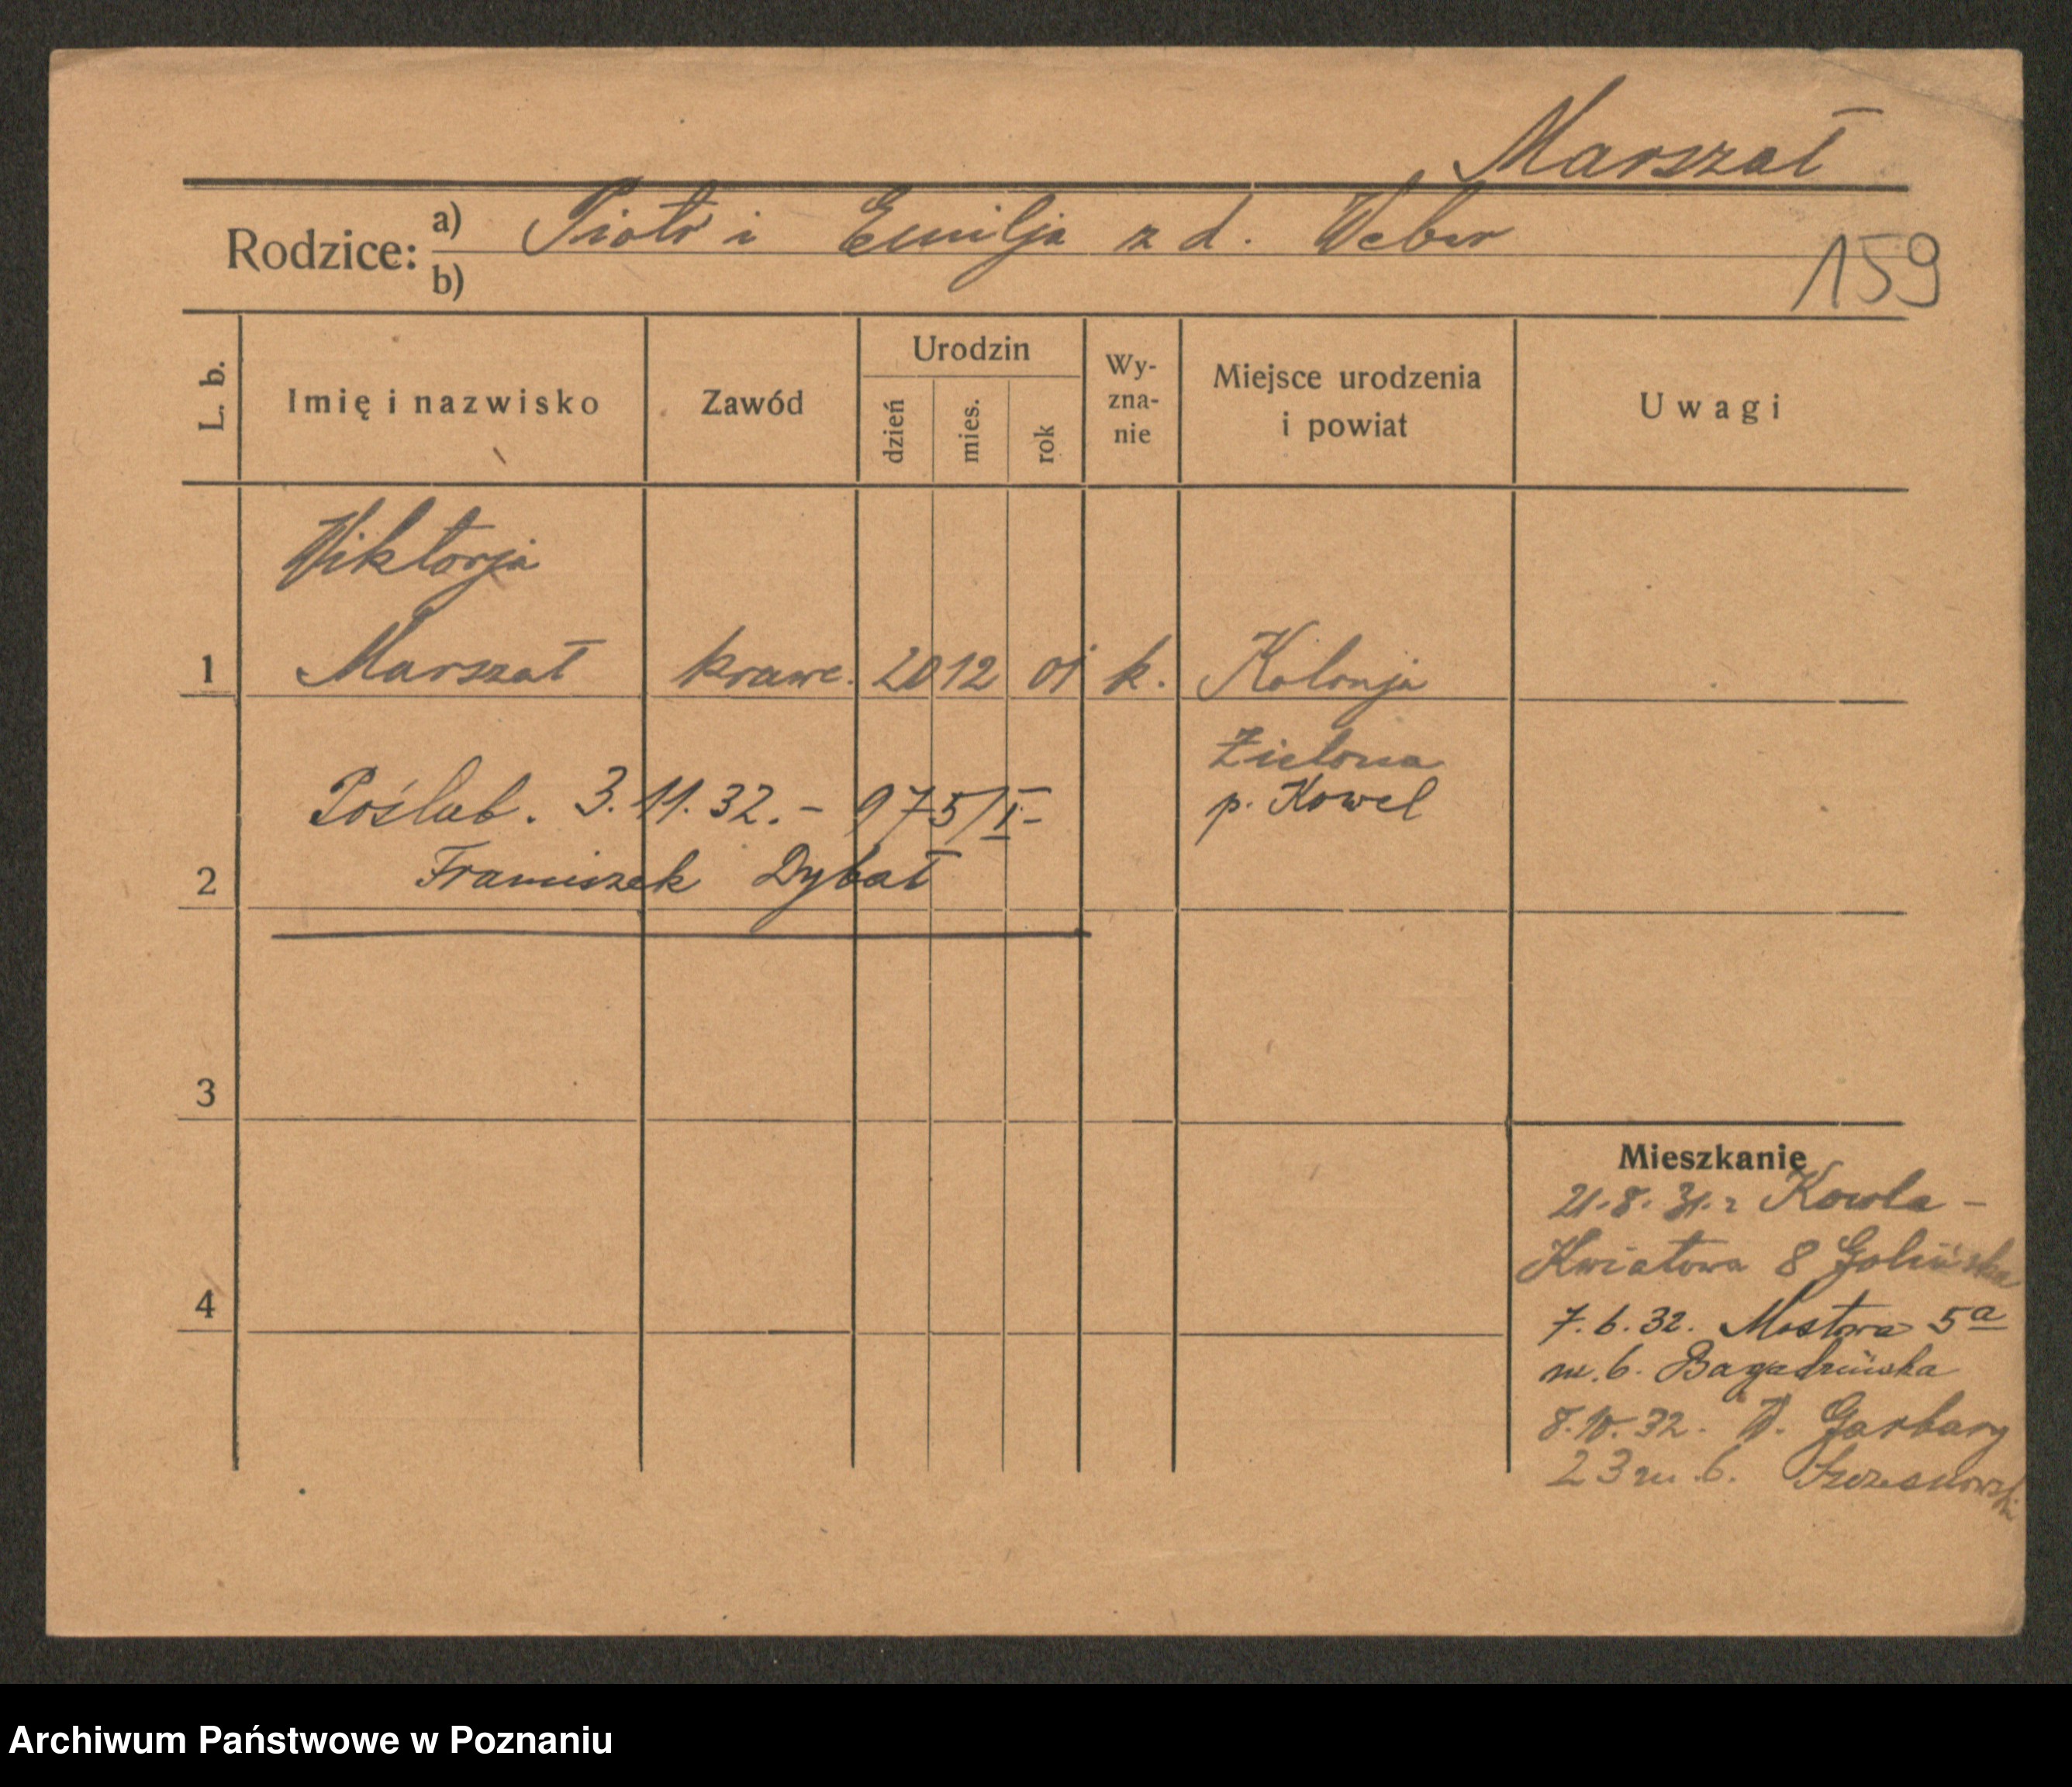 Marszał
Rodzice: a) Piotr i Emilja z d. Weber
b)
159
L. b.
Imię i nazwisko
Zawód
Urodzin
dzień
mies.
rok
Wy-
zna-
nie
Miejsce urodzenia
i powiat
Uwagi
Wiktorja
1 Marszał krawc. 20 12 01 k. Kolonja
Zielona
p. Kowel
Poślub. 3.11.32.- 975/I-
2 Franciszek Dybał
3
4
Mieszkanie
21.8.31. z Kowla -
Kwiatowa 8 Golińska
7.6.32. Mostowa 5a
m. 6.
8.10.32. W. Garbary
23 m. 6.
Archiwum Państwowe w Poznaniu